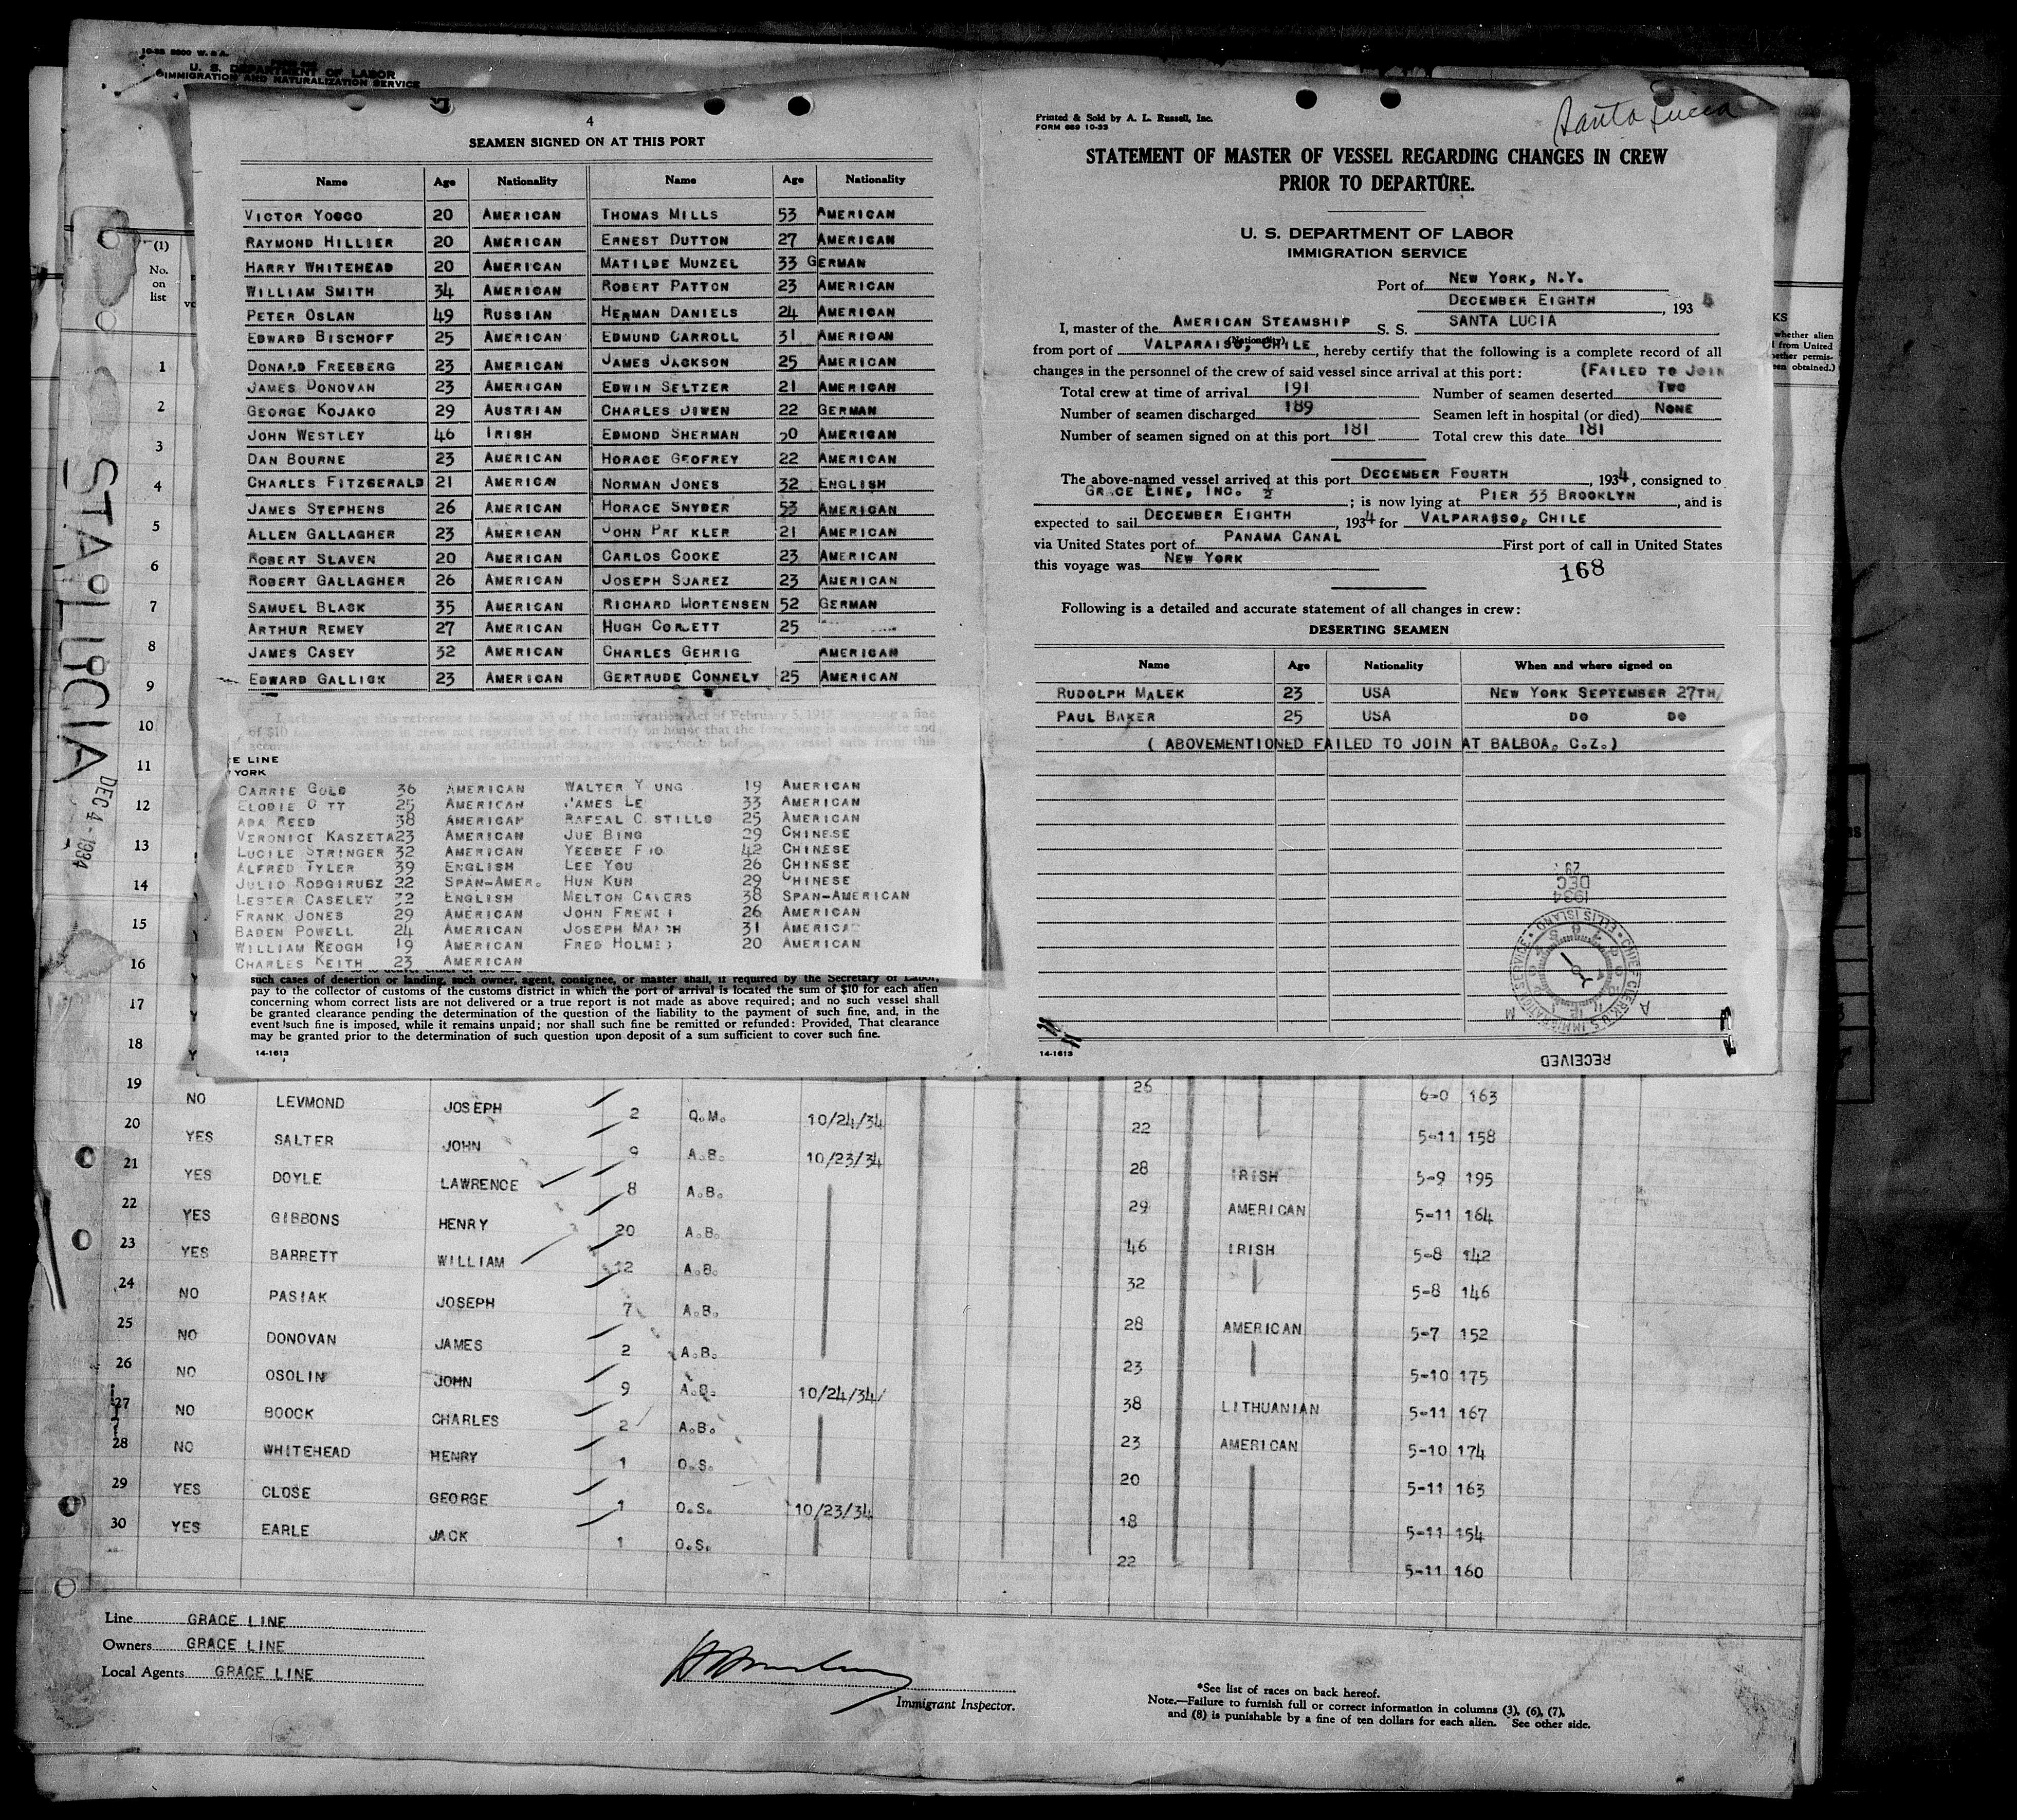 10-33 5500 W. & A.
U. S. DEPARTMENT OF LABOR
IMMIGRATION AND NATURALIZATION SERVICE
4
SEAMEN SIGNED ON AT THIS PORT
Name Age Nationality Name Age Nationality
VICTOR YOCCO 20 AMERICAN THOMAS MILLS 53 AMERICAN
RAYMOND HILLIER 20 AMERICAN ERNEST DUTTON 27 AMERICAN
HARRY WHITEHEAD 20 AMERICAN MATILDE MUNZEL 33 GERMAN
WILLIAM SMITH 34 AMERICAN ROBERT PATTON 23 AMERICAN
PETER OSLAN 49 RUSSIAN HERMAN DANIELS 24 AMERICAN
EDWARD BISCHOFF 25 AMERICAN EDMUND CARROLL 31 AMERICAN
DONALD FREEBERG 23 AMERICAN JAMES JACKSON 25 AMERICAN
JAMES DONOVAN 23 AMERICAN EDWIN SELTZER 21 AMERICAN
GEORGE KOJAKO 29 AUSTRIAN CHARLES DIWEN 22 GERMAN
JOHN WESTLEY 46 IRISH EDMOND SHERMAN AMERICAN
DAN BOURNE 23 AMERICAN HORACE GEOFREY 22 AMERICAN
CHARLES FITZGERALD 21 AMERICAN NORMAN JONES 32 ENGLISH
JAMES STEPHENS 26 AMERICAN HORACE SNYDER 53 AMERICAN
ALLEN GALLAGHER 23 AMERICAN JOHN 21 AMERICAN
ROBERT SLAVEN 20 AMERICAN CARLOS COOKE 23 AMERICAN
ROBERT GALLAGHER 26 AMERICAN JOSEPH SUAREZ 23 AMERICAN
SAMUEL BLACK 35 AMERICAN RICHARD MORTENSEN 52 GERMAN
ARTHUR REMEY 27 AMERICAN HUGH CORBETT 25
JAMES CASEY 32 AMERICAN CHARLES GEHRIG AMERICAN
EDWARD GALLICK 23 AMERICAN GERTRUDE CONNELY 25 AMERICAN
E LINE
YORK
CARRIE GOLD 36 AMERICAN WALTER Y UNG 19 AMERICAN
ELODIE O TT 25 AMERICAN JAMES LE 33 AMERICAN
ADA REED 38 AMERICAN RAFEAL C STILLO 25 AMERICAN
VERONICE KASZETA 23 AMERICAN JUE BING 29 CHINESE
LUCILE STRINGER 32 AMERICAN YEEBEE 42 CHINESE
ALFRED TYLER 39 ENGLISH LEE YOU 26 CHINESE
JULIO RODGIRUEZ 22 SPAN-AMER. HUN KUN 29 CHINESE
LESTER CASELEY 32 ENGLISH MELTON CAVERS 38 SPAN-AMERICAN
FRANK JONES 29 AMERICAN JOHN FRENCH 26 AMERICAN
BADEN POWELL 24 AMERICAN JOSEPH 31 AMERICAN
WILLIAM KEOGH 19 AMERICAN FRED HOLMES 20 AMERICAN
CHARLES KEITH 23 AMERICAN
such cases of desertion or landing, such owner, agent, consignee, or master shall, if required by the Secretary of Labor,
pay to the collector of customs of the customs district in which the port of arrival is located the sum of $10 for each alien
concerning whom correct lists are not delivered or a true report is not made as above required; and no such vessel shall
be granted clearance pending the determination of the question of the liability to the payment of such fine, and, in the
event such fine is imposed, while it remains unpaid; nor shall such fine be remitted or refunded: Provided, That clearance
may be granted prior to the determination of such question upon deposit of a sum sufficient to cover such fine.
14-1613
Santa Lucia
Printed & Sold by A. L. Russell, Inc.
FORM 689 10-33
STATEMENT OF MASTER OF VESSEL REGARDING CHANGES IN CREW
PRIOR TO DEPARTURE.
U. S. DEPARTMENT OF LABOR
IMMIGRATION SERVICE
Port of NEW YORK, N.Y.
DECEMBER EIGHTH, 193
I, master of the AMERICAN STEAMSHIP S. S. SANTA LUCIA
(Nationality)
from port of VALPARAISO, CHILE, hereby certify that the following is a complete record of all
changes in the personnel of the crew of said vessel since arrival at this port: (FAILED TO JOIN
Total crew at time of arrival 191 Number of seamen deserted TWO
Number of seamen discharged 189 Seamen left in hospital (or died) NONE
Number of seamen signed on at this port 181 Total crew this date 181
The above-named vessel arrived at this port DECEMBER FOURTH, 1934, consigned to
GRACE LINE, INC. ½; is now lying at PIER 33 BROOKLYN, and is
expected to sail DECEMBER EIGHTH, 1934 for VALPARASSO, CHILE
via United States port of PANAMA CANAL First port of call in United States
this voyage was NEW YORK
168
Following is a detailed and accurate statement of all changes in crew:
DESERTING SEAMEN
Name Age Nationality When and where signed on
RUDOLPH MALEK 23 USA NEW YORK SEPTEMBER 27TH
PAUL BAKER 25 USA DO DO
( ABOVEMENTIONED FAILED TO JOIN AT BALBOA, C.Z.)
1934
DEC
29
CHIEF CLERK U.S. IMMIGRATION SERVICE • ELLIS ISLAND
A M
RECEIVED
14-1613
STA. LUCIA
DEC 4 - 1934
(1)
No.
on
list
1
2
3
4
5
6
7
8
9
10
11
12
13
14
15
16
17
18
KS
whether alien
from United
ether permis-
een obtained.)
19 NO LEVMOND JOSEPH 2 Q.M. 10/24/34 26 6-0 163
20 YES SALTER JOHN 9 A.B. 10/23/34 22 5-11 158
21 YES DOYLE LAWRENCE 8 A.B. 28 IRISH 5-9 195
22 YES GIBBONS HENRY 20 A.B. 29 AMERICAN 5-11 164
23 YES BARRETT WILLIAM 12 A.B. 46 IRISH 5-8 142
24 NO PASIAK JOSEPH 7 A.B. 32 5-8 146
25 NO DONOVAN JAMES 2 A.B. 28 AMERICAN 5-7 152
26 NO OSOLIN JOHN 9 A.B. 10/24/34 23 5-10 175
27 NO BOOCK CHARLES 2 A.B. 38 LITHUANIAN 5-11 167
28 NO WHITEHEAD HENRY 1 O.S. 23 AMERICAN 5-10 174
29 YES CLOSE GEORGE 1 O.S. 10/23/34 20 5-11 163
30 YES EARLE JACK 1 O.S. 18 5-11 154
22 5-11 160
Line GRACE LINE
Owners GRACE LINE
Local Agents GRACE LINE
Immigrant Inspector.
*See list of races on back hereof.
Note.—Failure to furnish full or correct information in columns (3), (6), (7),
and (8) is punishable by a fine of ten dollars for each alien. See other side.